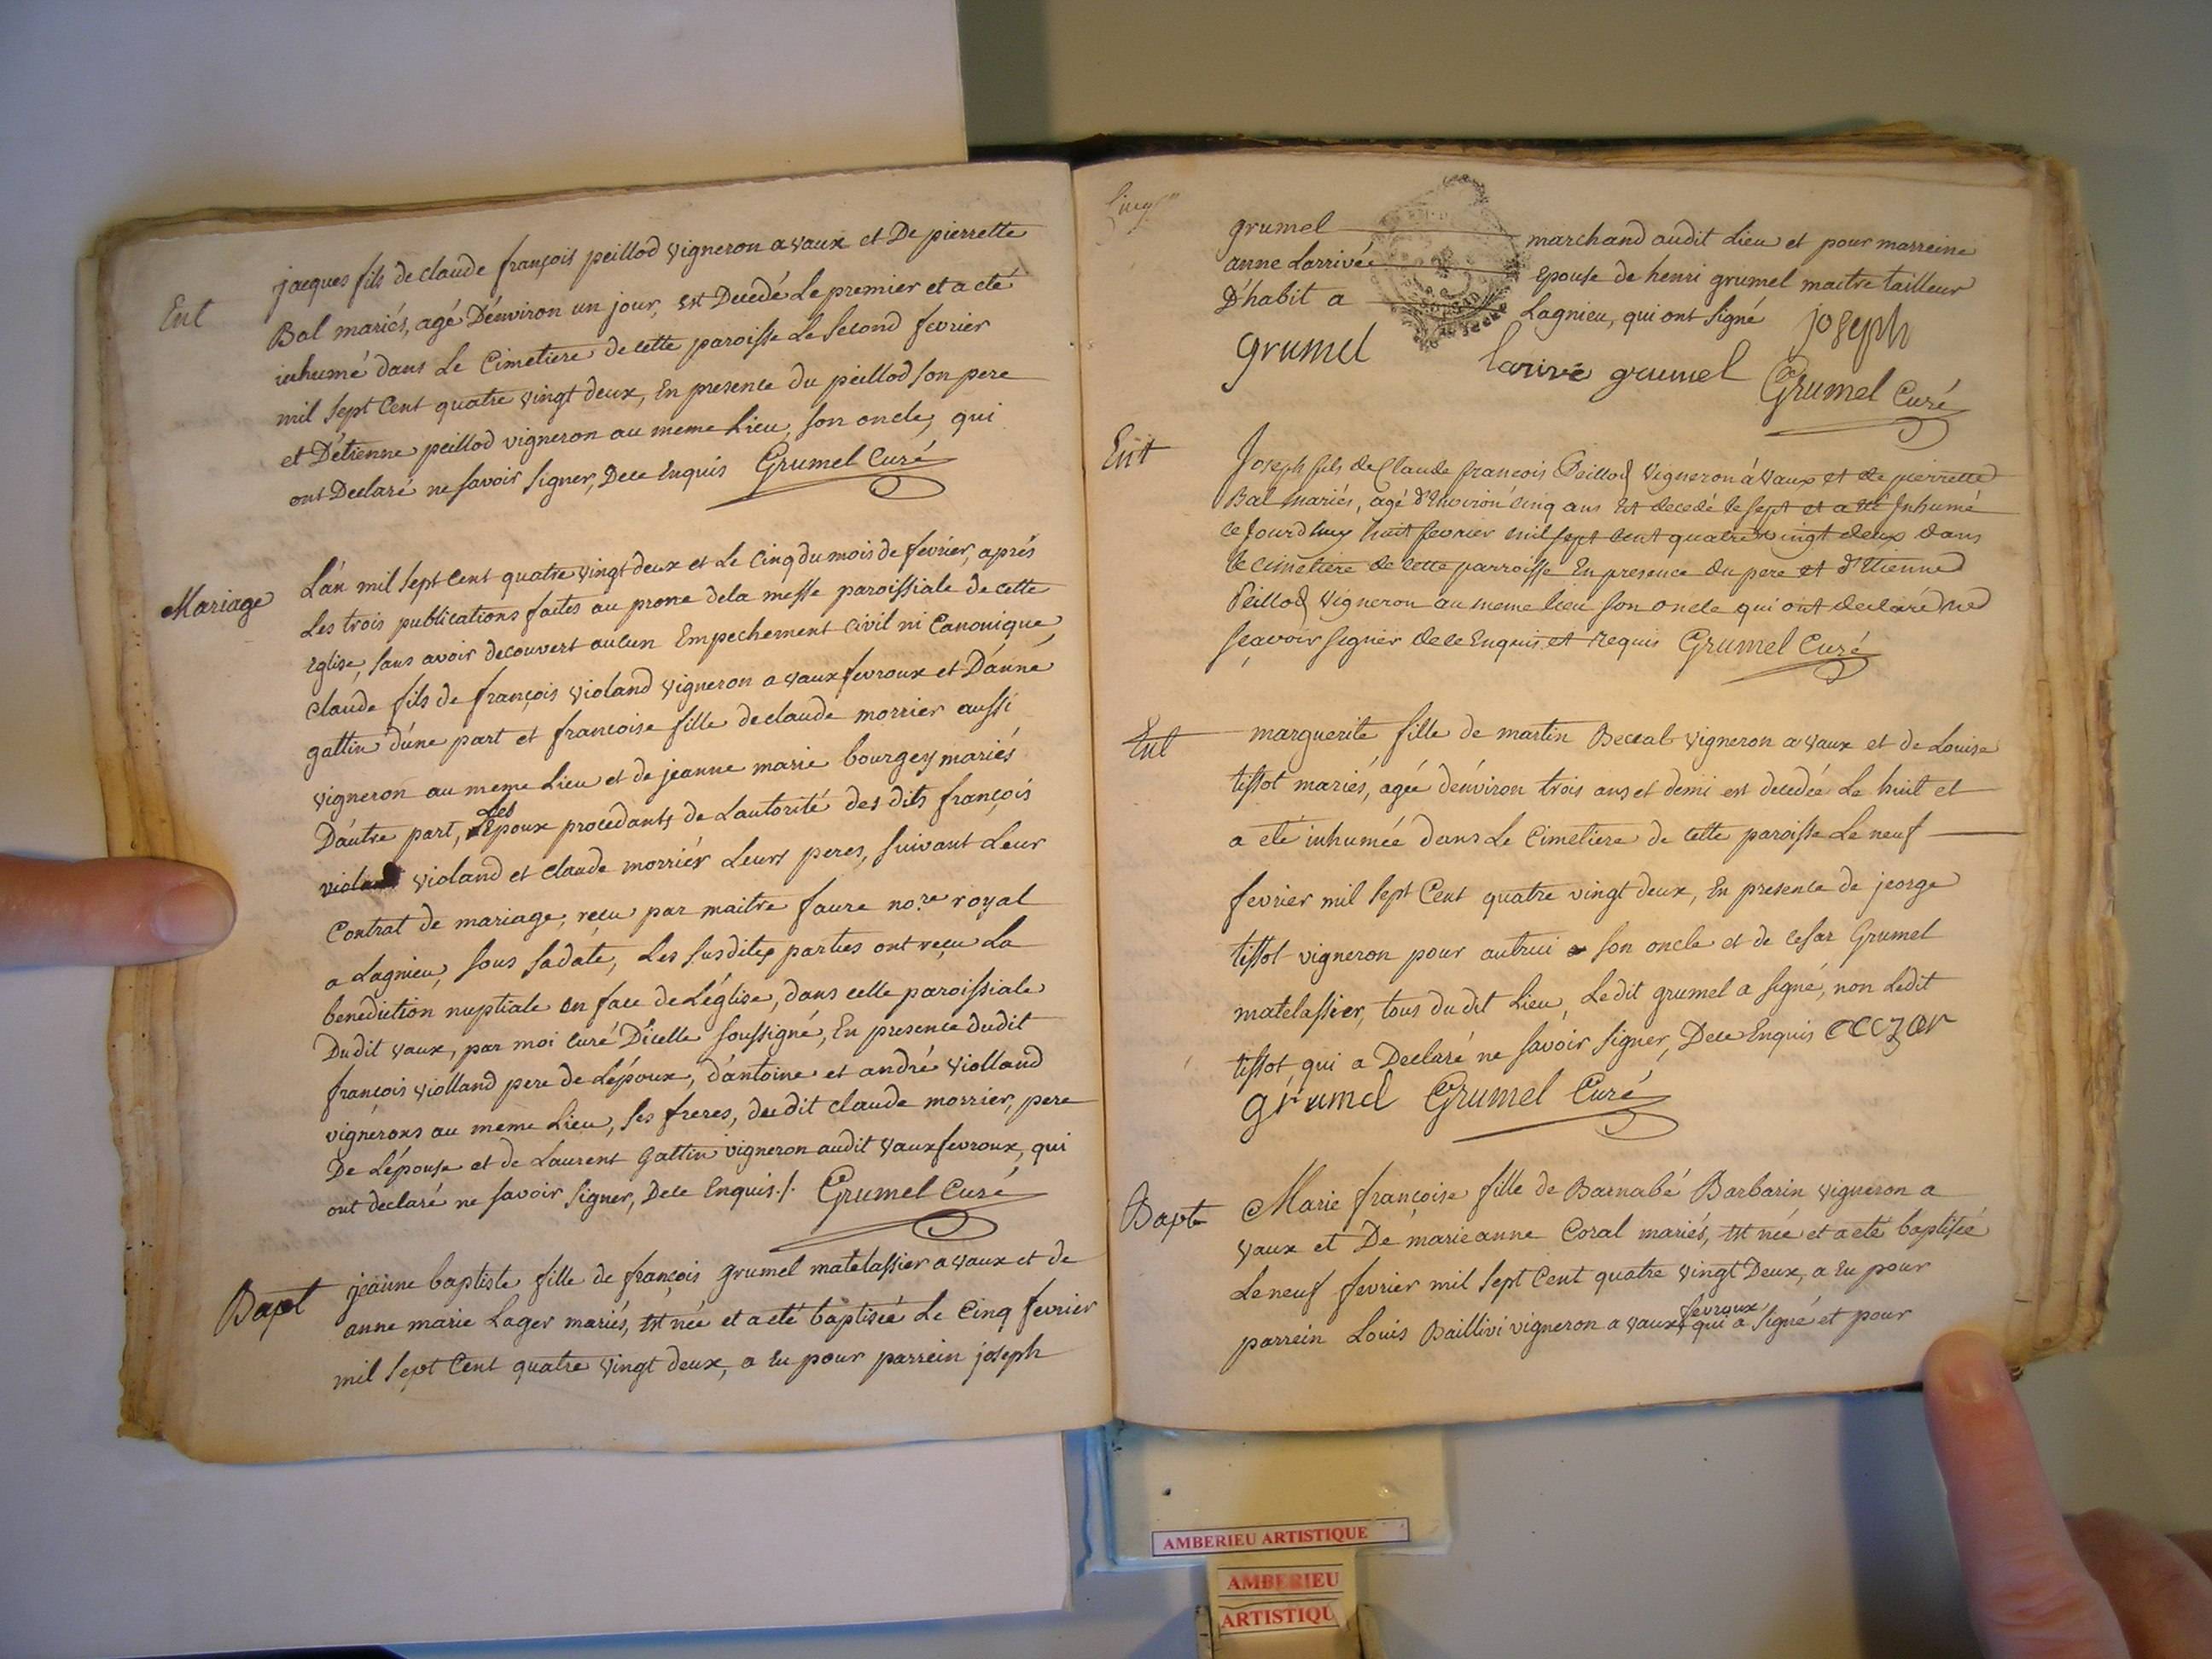 Ent
jacques fils de claude françois peillod vigneron a vaux et De pierrette
Bal mariés, agé D'énviron un jour, est Decedé Le premier et a eté
inhumé dans Le Cimetiere de cette paroisse Le second février
mil sept Cent quatre vingt deux, En presence du peillod son pere
et D'étienne peillod vigneron au meme Lieu, son oncle, qui
ont Declaré ne savoir signer, Dece Enquis Grumel Curé
Mariage
L'án mil sept Cent quatre vingt deux et Le Cinq du mois de fevrier, aprés
Les trois publications faites au prone dela messe paroissiale de cette
Eglise, sans avoir decouvert aucun Empechement Civil ni Canonique
Claude fils de françois violand vigneron a vaux fevroux et D'ánne
gattin d'úne part et francoise fille de claude morrier aussi
vigneron au meme Lieu et de jeanne marie bourgey mariés
D'áutre part, Les Epoux procedants de L'autorité des dits françois
violand et claude morriér Leurs peres, suivant Leur
Contrat de mariage, reçu par maitre faure no.re royal
a Lagnieu, sous sadate, Les susdites parties ont reçu La
benediction nuptiale en face de L'église, dans celle paroissiale
Dudit vaux, par moi curé D'icelle soussigné, En presence dudit
françois violland pere de L'époux, d'ántoine et andré violland
vignerons au meme Lieu, ses freres, dudit claude morrier, pere
De L'épouse et de Laurent Gattin vigneron audit vauxfevroux, qui
ont declaré ne savoir signer, Dece Enquis ./. Grumel Curé
Bapt
jeanne baptiste fille de françois grumel matelassier a vaux et de
anne marie Lager mariés, est née et a eté baptisée Le Cinq fevrier
mil sept Cent quatre vingt deux, a Eu pour parrein joseph
grumel marchand audit Lieu et pour marreine
anne Larrivée Epouse de henri grumel maitre tailleur
D'habit a Lagnieu, qui ont signé joseph
grumel larivé grumel Grumel Curé
Ent
Joseph fils de Claude francois Peillod Vigneron à Vaux et de pierrette
Bal mariés, agé d'Environ cinq ans Est decedé le sept et a eté Inhumé
ce Jourdhuy huit fevrier mil sept cent quatre vingt deux dans
le cimetiere de cette parroisse En presence du pere et d'Etienne
Peillod Vigneron au meme lieu son oncle qui ont declaré ne
sçavoir signer dece Enquis et requis Grumel Curé
Ent
marguerite fille de martin Beccal vigneron a vaux et de Louise
tissot mariés, agée d'énviron trois ans et demi est decedée Le huit et
a eté inhumée dans Le Cimetiere de cette paroisse Le neuf
fevrier mil sept Cent quatre vingt deux, En presence de jeorge
tissot vigneron pour autrui son oncle et de Cesar Grumel
matelassier, tous dudit Lieu, Ledit grumel a signé, non Ledit
tissot, qui a Declaré ne savoir signer, Dece Enquis
grumel Grumel Curé
Bapt
Marie françoise fille de Barnabé Barbarin vigneron a
vaux et De marieanne Coral mariés, est née et a eté baptisée
Le neuf fevrier mil sept Cent quatre vingt Deux, a Eu pour
parrein Louis Baillivi vigneron a vaux fevroux qui a signé et pour
AMBERIEU ARTISTIQUE
AMBERIEU
ARTISTIQU